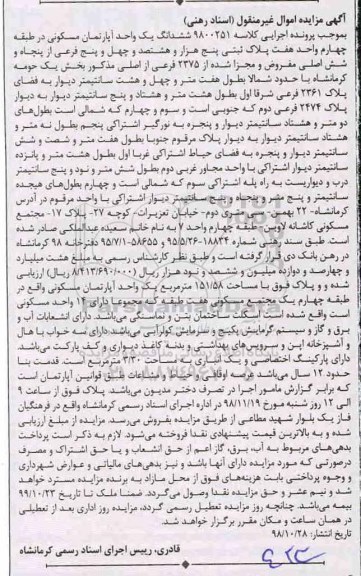 آگهی مزایده اموال غیرمنقول (اسناد رهنی)
بموجب پرونده اجرایی کلاسه ۹۸۰۰۲۵۱ ششدانگ یک واحد آپارتمان مسکونی در طبقه
چهارم واحد هفت پلاک ثبتی پنج هزار و هشتصد و چهل و پنج فرعی از پنجاه و
شش اصلی مفروض و مجزا شده از ۲۳۷۵ فرعی از اصلی مذکور بخش یک حومه
کرمانشاه با حدود شمالا بطول هفت متر و چهل و هشت سانتیمتر دیوار به فضای
پلاک ۲۳۶۱ فرعی شرقا اول بطول هشت متر و هشتاد و پنج سانتیمتر دیوار به دیوار
پلاک ۲۴۷۴ فرعی دوم که جنوبی است و سوم و چهارم که شمالی است بطول‌های
دو متر و هشتاد سانتیمتر دیوار و پنجره به نورگیر اشتراکی پنجم بطول نه متر و
هشتاد سانتیمتر دیوار به دیوار پلاک مرقوم جنوبا بطول هفت متر و شصت و شش
سانتیمتر دیوار و پنجره به فضای حیاط اشتراکی غربا اول بطول هشت متر و پانزده
سانتیمتر دیوار اشتراکی با واحد مجاور غربی دوم بطول شش متر و نود و پنج سانتیمتر
درب و دیواریست به راه پله اشتراکی سوم که شمالی است و چهارم بطول‌های هیجده
سانتیمتر و پنج متر و پنجاه و پنج سانتیمتر دیوار اشتراکی با واحد مرقوم در آدرس
کرمانشاه- ۲۲ بهمن- شهرک دوم- خیابان تعزیرات- کوچه ۲۷- پلاک ۱۷- مجتمع
مسکونی کاشانه لاوین- طبقه چهارم واحد ۷ به نام خانم سعیده عبدالمکی صادر شده
است. طبق سند رهنی شماره ۱۸۸۳۴-۹۵/۵/۲۶ و ۵۸۶۵۵-۹۵/۷/۱ دفترخانه ۹۸ کرمانشاه
در رهن بانک دی قرار گرفته است و طبق نظر کارشناس رسمی به مبلغ هشت میلیارد
و چهارصد و دوازده میلیون و ششصد و نود هزار ریال (۸/۴۱۳/۶۹۰/۰۰۰ ریال) ارزیابی
شده و و پلاک فوق با مساحت ۱۵۱/۵۸ مترمربع یک واحد آپارتمان مسکونی واقع در
طبقه چهارم یک مجتمع مسکونی هفت طبقه که مجموعا دارای ۱۴ واحد مسکونی
است واقع شده است. اسکلت ساختمان بتن و نمای شمالی می‌باشد دارای انشعابات آب و
برق و گاز و سیستم گرمایش پکیج و سرمایش کولر آبی می‌باشد دارای سه خواب با هال
و آشپزخانه اپن و سرویس‌های بهداشتی و بدنه کاغذ دیواری و کف پارکت می‌باشد
دارای پارکینگ اختصاصی و یک انباری به مساحت ۳/۳۰ مترمربع است. قدمت بنا
حدود ۱۲ سال می‌باشد عرصه اوقافی و حیاط و مشاعات طبق قوانین آپارتمان است
که برابر گزارش مامور اجرا در تصرف دختر مدیون می‌باشد. پلاک فوق از ساعت ۹
الی ۱۲ روز شنبه مورخ ۹۸/۱۱/۱۹ در اداره اجرای اسناد رسمی کرمانشاه واقع در فرهنگیان
فاز یک بلوار شهید مطاعی از طریق مزایده بفروش می‌رسد. مزایده از مبلغ ارزیابی
شده و به بالاترین قیمت پیشنهادی نقدا فروخته می‌شود. لازم به ذکر است پرداخت
بدهی‌های مربوط به آب، برق، گاز اعم از حق انشعاب و یا حق اشتراک و مصرف
درصورتی که مورد مزایده دارای آنها باشد و نیز بدهی‌های مالیاتی و عوارض شهرداری
و وجوه پرداختی بابت هزینه‌های فوق از محل مازاد به برنده مزایده مسترد خواهد
شد و نیم عشر و حق مزایده نقدا وصول می‌گردد. ضمنا ملک تا تاریخ ۹۹/۱۰/۲۳
بیمه می‌باشد. چنانچه روز مزایده تعطیل رسمی گردد، مزایده روز اداری بعد از تعطیلی
در همان ساعت و مکان مقرر برگزار خواهد شد.
تاریخ انتشار: ۹۸/۱۰/۲۸
قادری، رییس اجرای اسناد رسمی کرمانشاه